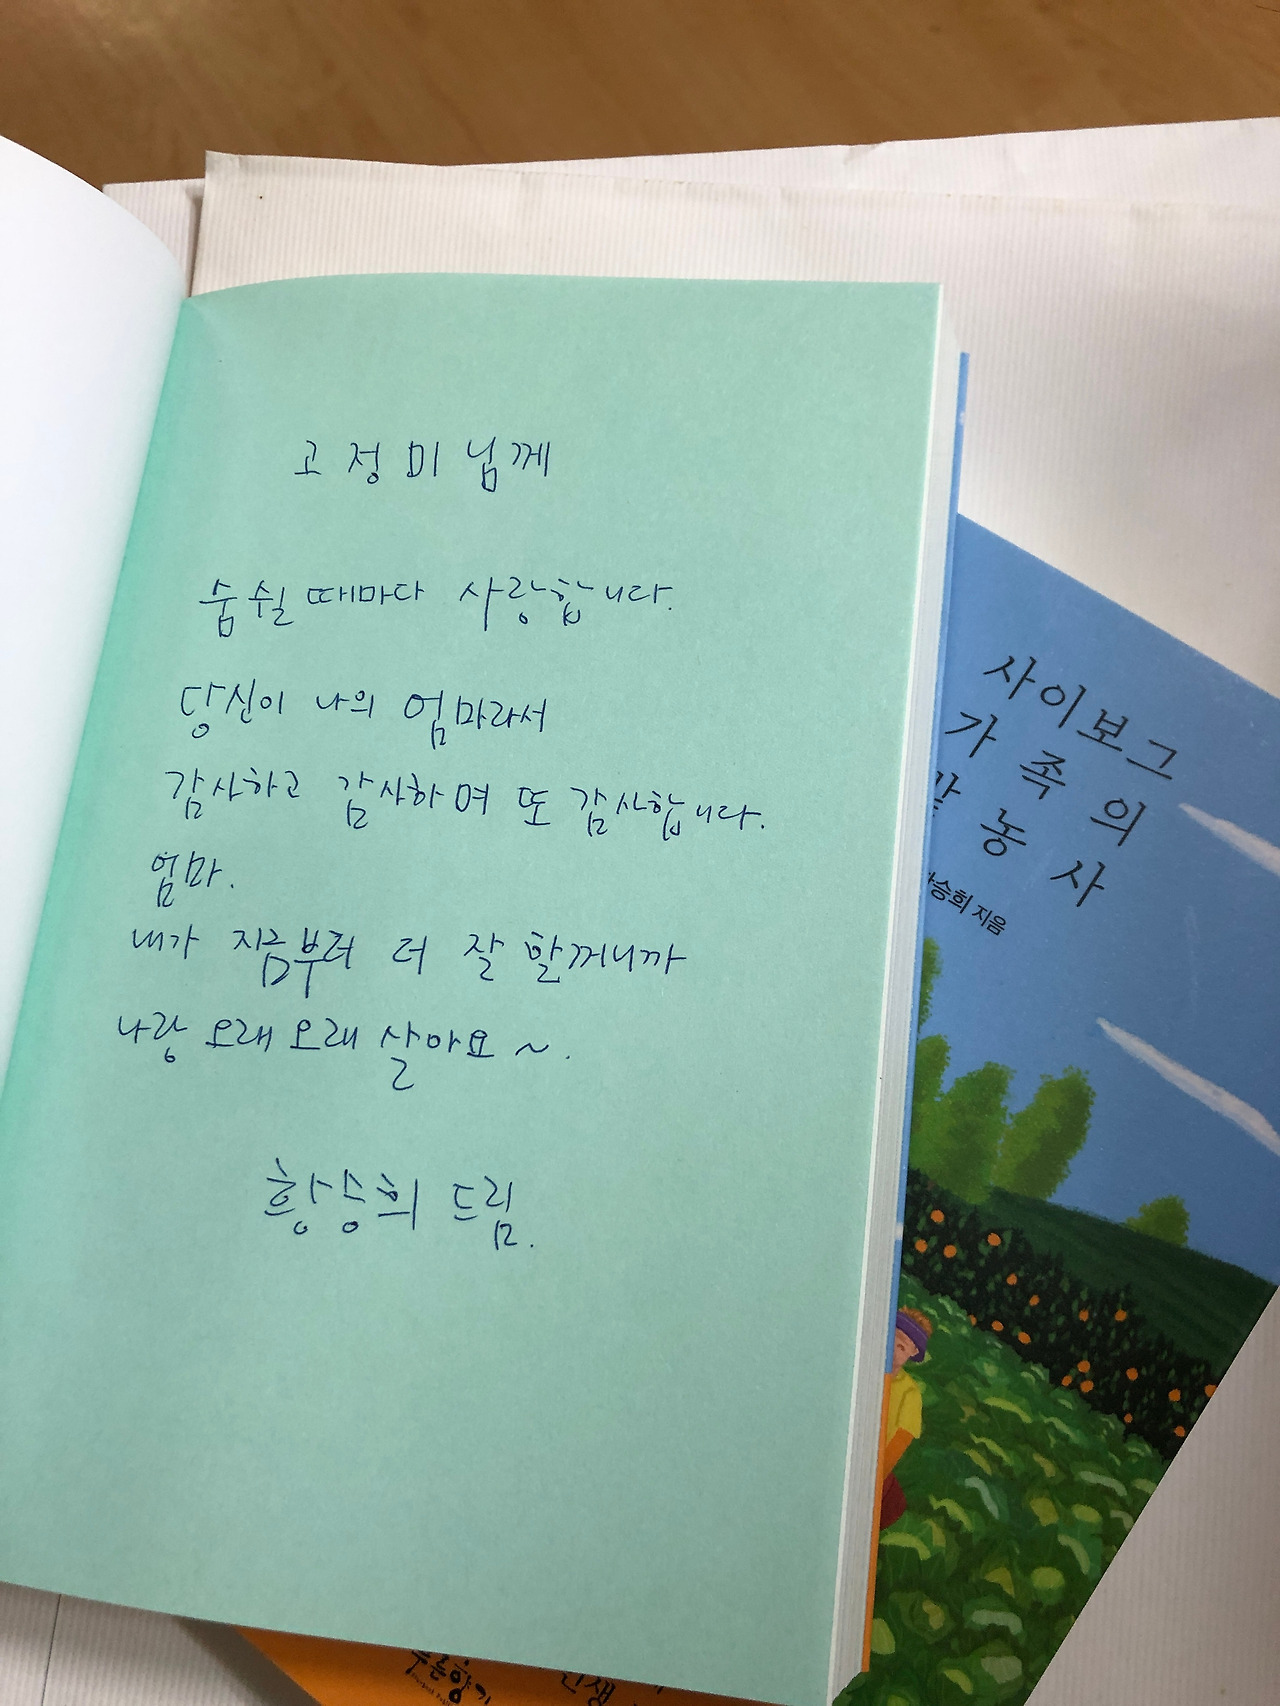 고정미님께
숨쉴 때마다 사랑합니다.
당신이 나의 엄마라서
감사하고 감사하며 또 감사합니다.
엄마.
내가 지금부터 더 잘 할꺼니까
나랑 오래오래 살아요~.
황승희 드림.
사이보그
가족의
농사
승희 지음
푸른향기
인생